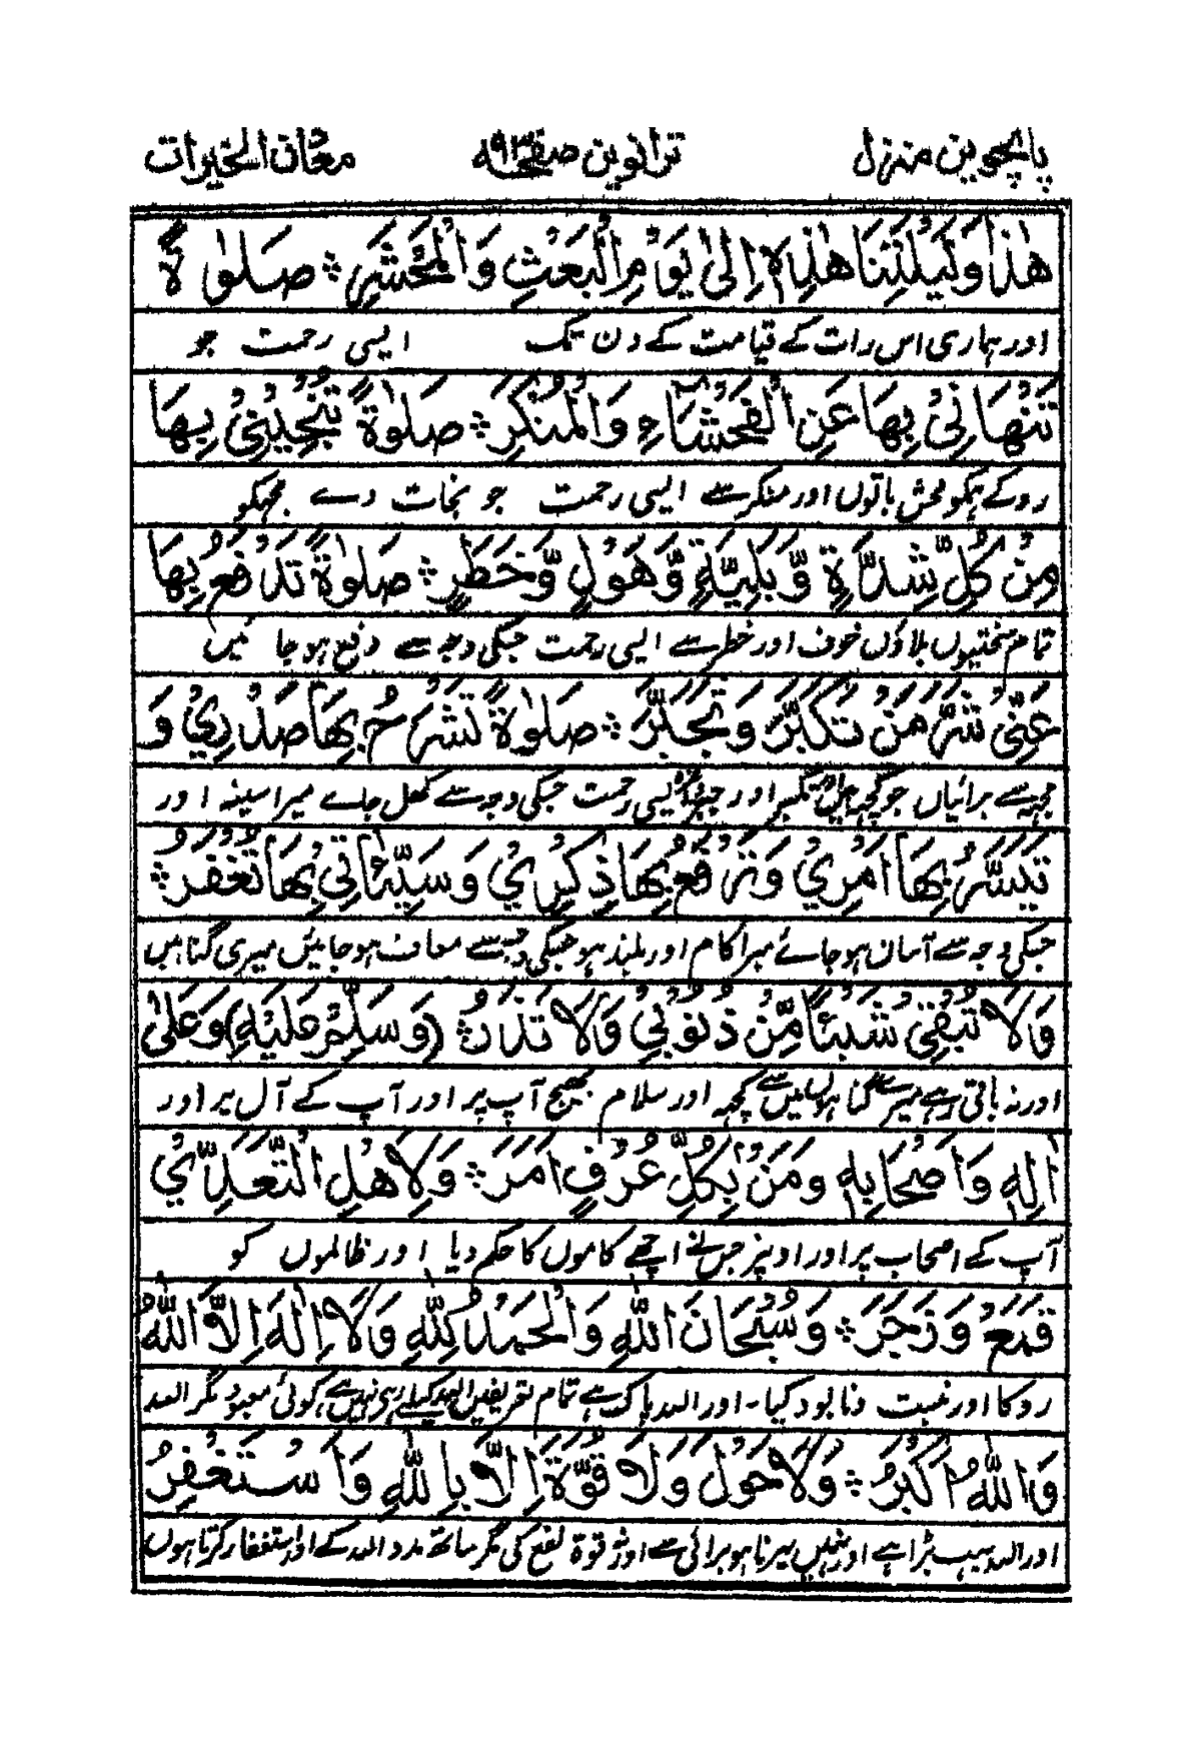 پانچوین منزل ترانوین صفحہ۹۳ معان الخیرات
هٰذَا وَلَيْلَتِنَا هٰذِهٖ اِلٰى يَوْمِ الْبَعْثِ وَالْمَحْشَرِ ؞ صَلٰوةً
اور ہماری اس رات کے قیامت کے دن تک ایسی رحمت جو
تَنْهَانِيْ بِهَا عَنِ الْفَحْشَآءِ وَالْمُنْكَرِ ؞ صَلٰوةً تُنْجِيْنِيْ بِهَا
روکے ہمکو فحش باتوں اور منکر سے ایسی رحمت جو نجات دے مجہکو
مِنْ كُلِّ شِدَّةٍ وَّبَلِيَّةٍ وَّهَوْلٍ وَّخَطَرٍ ؞ صَلٰوةً تَدْفَعُ بِهَا
تمام سختیوں بلاؤں خوف اور خطر سے ایسی رحمت جسکی وجہ سے دفع ہو جا ئیں
عَنِّيْ شَرَّ مَنْ تَكَبَّرَ وَتَجَبَّرَ ؞ صَلٰوةً تَشْرَحُ بِهَا صَدْرِيْ وَ
مجہہ سے برائیاں جو کچہہ تکبر اور ایسی رحمت جسکی وجہ سے کھل جاے میرا سینہ اور
تُيَسِّرُ بِهَا اَمْرِيْ وَتَرْفَعُ بِهَا ذِكْرِيْ وَسَيِّئَاتِيْ بِهَا تُغْفَرُ ؞
جسکی وجہ سے آسان ہو جاے میرا کام اور بلند ہو جسکی وجہ سے معاف ہو جائیں میری گناہیں
وَلَا تُبْقِيْ شَيْئًا مِّنْ ذُنُوْبِيْ وَلَا تَذَرْ ؞ (وَسَلِّمْ عَلَيْهِ) وَعَلٰى
اور نہ باقی رہے میرے گناہوں میں سے کچہہ اور سلام بھیج آپ پر اور آپ کے آل پر اور
اٰلِهٖ وَاَصْحَابِهٖ وَمَنْ بِكُلِّ عُرْفٍ اَمَرَ ؞ وَلِاَهْلِ التَّعَدِّيْ
آپ کے اصحاب پر اور اوپر جس نے اچھے کاموں کا حکم دیا اور ظالموں کو
قَمَعَ وَزَجَرَ ؞ وَسُبْحَانَ اللّٰهِ وَالْحَمْدُ لِلّٰهِ وَلَا اِلٰهَ اِلَّا اللّٰهُ
روکا اور نیست ونابود کیا۔ اور اللہ پاک ہے تمام تعریفیں اللہ کیلے ہی نہیں ہے کوئی معبود مگر اللہ
وَاللّٰهُ اَكْبَرُ ؞ وَلَا حَوْلَ وَلَا قُوَّةَ اِلَّا بِاللّٰهِ وَاَسْتَغْفِرُ
اور اللہ بہت بڑا ہے اور نہیں پہرنا ہو برائی سے اور نہ قوۃ نفع کی مگر ساتھ مدد اللہ کے اور استغفار کرتا ہوں